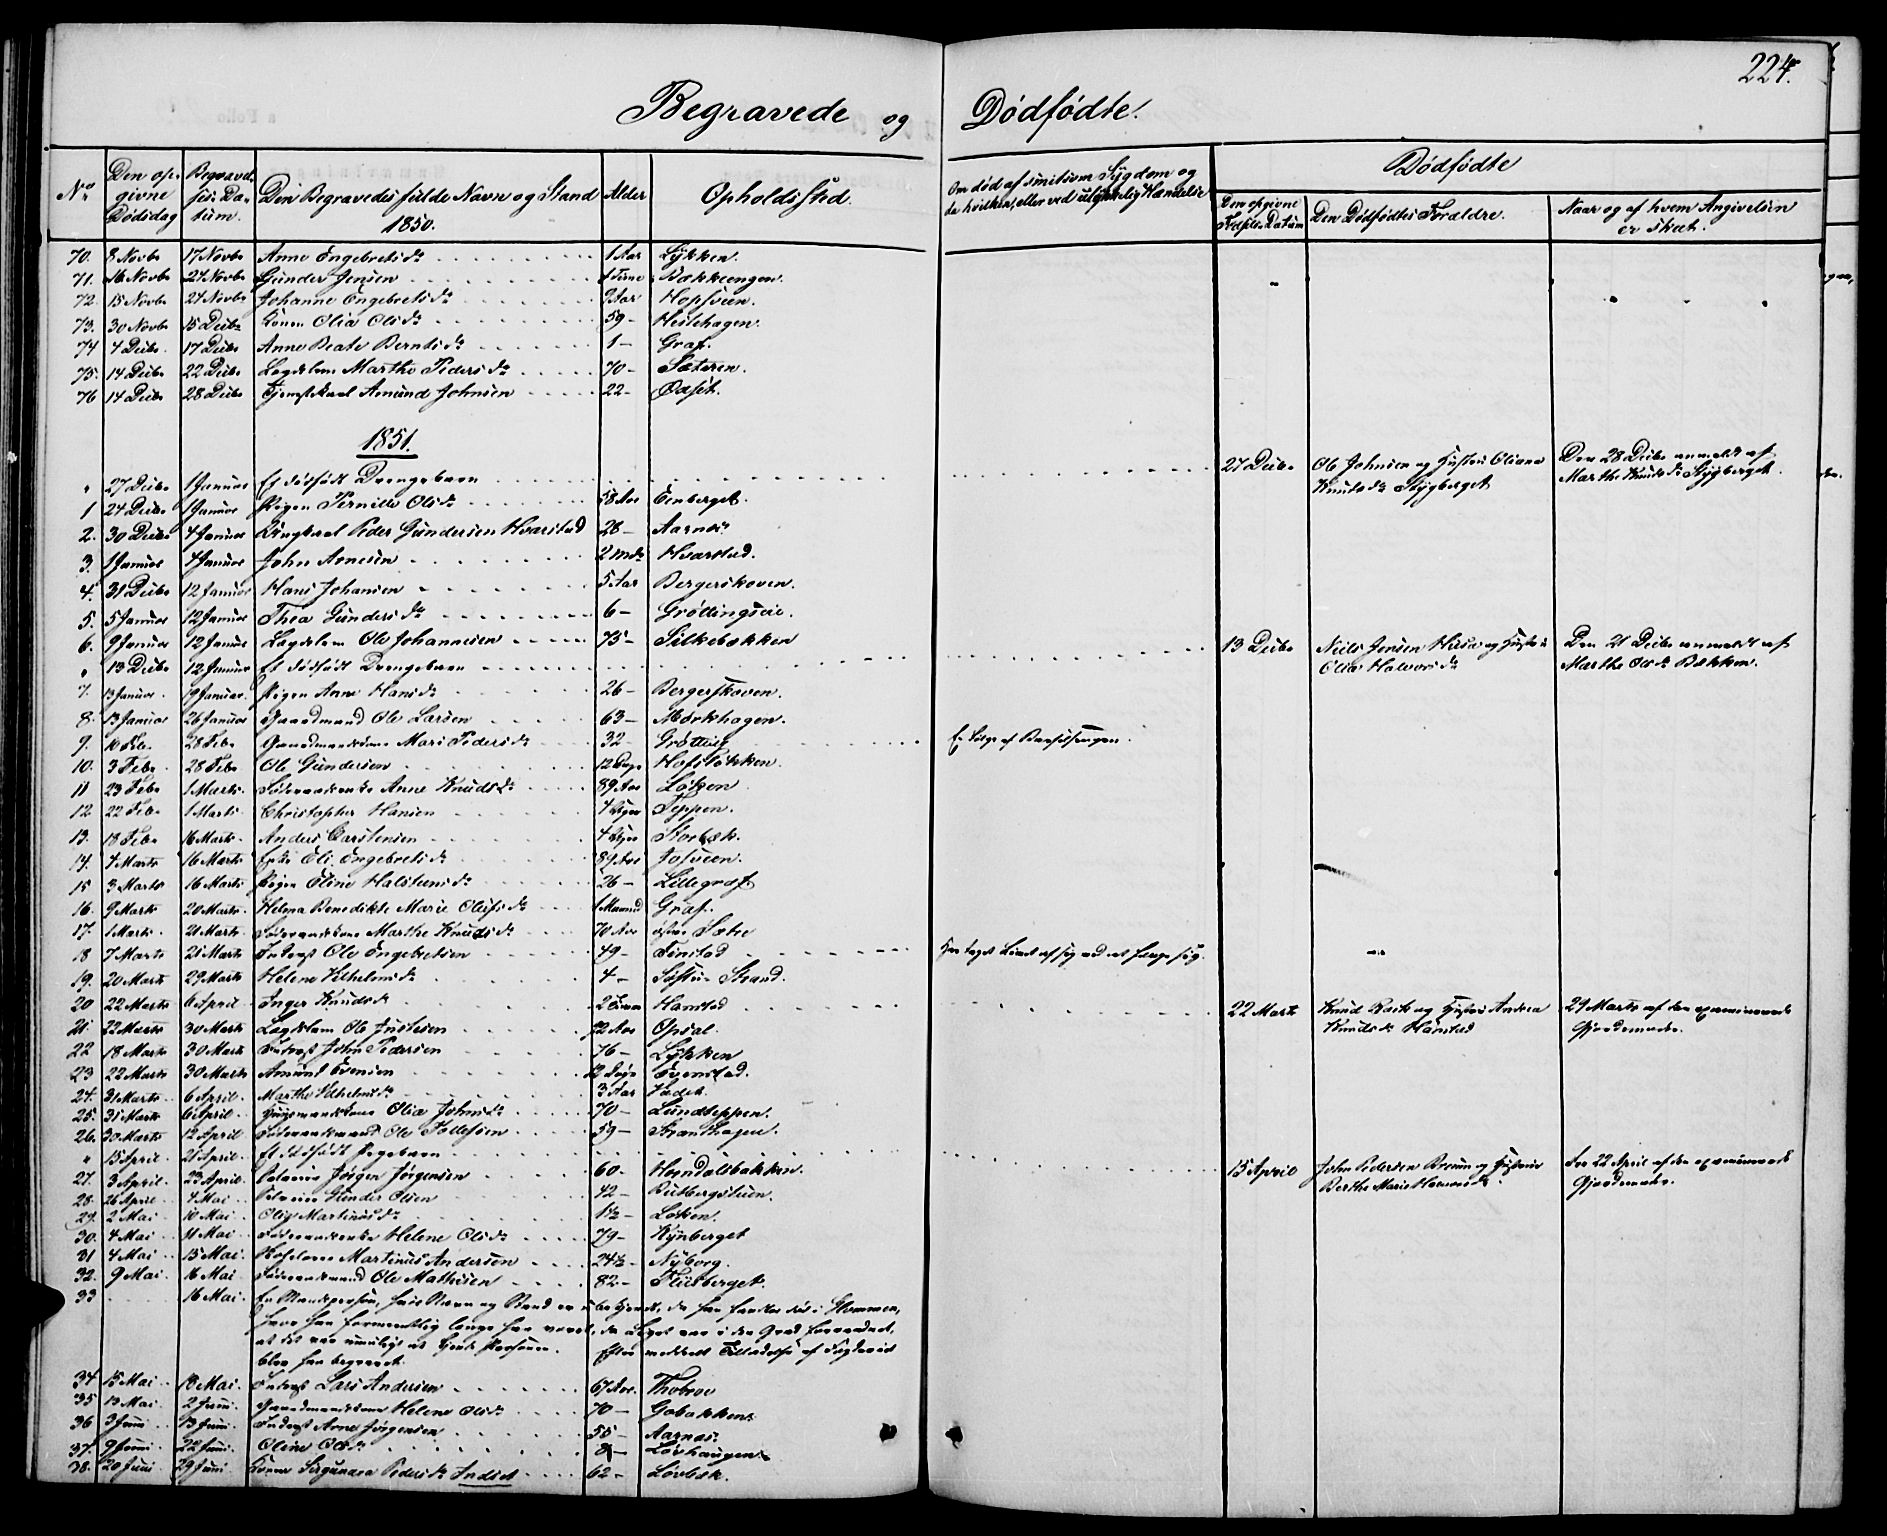 224.
Begravede og Dødfødte.
No
Den opgivne Dødsdag
Begravelses Datum.
Den Begravedes fulde Navn og Stand
1850.
Alder
Opholdssted.
Om død af smitsom Sygdom og da hvilken, eller ved ulykkelig Hændelse
Dødfødte
Den opgivne Fødsels Datum
Den Dødfødtes Forældre.
Naar og af hvem Angivelsen er skeet.
70. 8 Novbr 17 Novbr Anne Engebretsdr 1 Aar Lykken.
71. 16 Novbr 24 Novbr Gunder Jensen Bakkeengen.
72. 15 Novbr 24 Novbr Johanne Engebretsdr 9 Aar Hopsveen.
73. 30 Novbr 15 Decbr Konen Olia Olsdr 59 - Hestehagen.
74 4 Decbr. 17 Decbr Anne Beate Berntsdr 1 - Graf.
75. 14 Decbr 22 Decbr Lægdslem Marthe Pedersdr 70 - Sæteren.
76 14 Decbr 28 Decbr Tjenestekarl Amund Johnsen 22 - Ødset.
1851.
" 27 Decbr 1 Januar Et dødfødt Drengebarn 27 Decbr Ole Johnsen og Hustru Oliana Den 28 Decbr anmeldt af
Knudsdr Stygberget Marthe Knudsdr Stygberget.
1 24 Decbr 1 Januar Pigen Pernille Olsdr 58 Aar Eenberget.
2. 30 Decbr 4 Januar Ungkarl Peder Gundersen Hvarstad 28 - Aarnes.
3. 1 Januar 4 Januar John Arnesen 2 Mdr Hvarstad.
4. 31 Decbr 12 Januar Hans Johansen 5 Aar Bergerskoven.
5. 5 Januar 12 Januar Thea Gundersdr 6 - Grøttingseie.
6. 9 Januar 12 Januar Lægdslem Ole Johannesen 75 - Silkebækken
" 13 Decbr 12 Januar Et dødfødt Drengebarn 13 Decbr Niels Jensen og Hustru Den 21 Decbr anmeldt af
Olia Halvorsdr Marthe Olsdr Bækken.
7. 13 Januar. 19 Januar. Pigen Anne Hansdr 26 - Bergerskoven.
8. 13 Januar 26 Januar Gaardmand Ole Larsen 63 - Mørkhagen.
9. 10 Febr 28 Febr Gaardmandskone Mari Pedersdr 32 - Grøtting En Følge af Barselsengen.
10. 3 Febr 28 Febr Ole Gundersen 12 Dage Hofsløkken.
11 23 Febr 1 Marts. Føderaadsenke Anne Knudsdr 89 Aar Løken
12 22 Febr 1 Marts. Christopher Hansen 4 Uger Teppen.
13. 18 Febr 16 Marts. Anders Carstensen 4 Uger Storbæk.
14. 4 Marts 16 Marts Enke Eli Engebretsdr 89 Aar Josveen.
15 3 Marts 16 Marts Pigen Eline Halstensdr 26 - Lillegraf
16. 9 Marts 20 Marts. Helma Benedikte Marie Olufsdr 1 Maaned Graf.
17. 1 Marts. 21 Marts. Føderaadskone Marthe Knudsdr 70 Aar østre Sætre
18 7 Marts 21 Marts Inderst Ole Engebretsen 49 - Finstad Har taget Livet af sig ved at hænge sig.
19. 20 Marts 29 Marts Helene Vilhelmsdr 4 - Søstu Strand.
20 22 Marts 6 April Inger Knudsdr 2 Timer Hanstad 22 Marts Knud og Hustru Andrea 29 Marts af den examinerede
Knudsdr Hanstad Gjordemoder.
21. 22 Marts 30 Marts Lægdslem Ole Justesen 72 Aar Opsal.
22 18 Marts 30 Marts Inderst John Pedersen 76 - Lykken
23 22 Marts 30 Marts Amund Evensen 12 Dage Evenstad.
24. 31 Marts 6 April. Marthe Vilhelmsdr 3 Aar
25. 31 Marts 6 April. Huusmandskone Olia Johnsdr 70 - Lundteppen.
26. 30 Marts 12 April Føderaadsmand Ole Tollefsen 59 - Strandhagen.
" 15 April 21 April. Et dødfødt Pigebarn 15 April John Pedersen og Hustru den 22 April af den examinerede
Berthe Marie Halvorsdr. Gjordemoder.
27. 3 April. 23 April. Jørgen Jørgensen 60 - Horndalsbakken.
28. 26 April. 4 Mai. Gunder Olsen 42 - Rutbergstuen.
29. 2 Mai 10 Mai. Martinusdr 1½ - Løken.
30. 4 Mai 11 Mai Føderaadsenke Helene Olsdr 79 - Kynberget
31 4 Mai 15 Mai. Martinus Andersen 24½ - Nyborg.
32. 9 Mai. 16 Mai Føderaadsmand Ole Mathisen 82 - Fluberget.
33 16 Mai. En Mandsperson, hvis Navn og Stand er ubekjendt, da han fandtes død i Glommen,
hvor han formeentlig længe har været, da Liget var i den Grad forraadnet,
at det var umuligt at kjende Personen. Efter meddeelt Tilladelse af Fogderiet
blev han begravet.
34 15 Mai 18 Mai. Inderst Lars Andersen 67 Aar. Thobroe
35 13 Mai. 2 Juni. Gaardmandskone Helene Olsdr 70 - Gobakken.
36 3 Juni 13 Juni. Inderst Arne Jørgensen 55 - Aarnes.
37. 9 Juni 22 Juni. Oline Olsdr Løvhaugen.
38. 20 Juni 29 Juni Konen Pedersdr Indset 62 - Løvbæk.